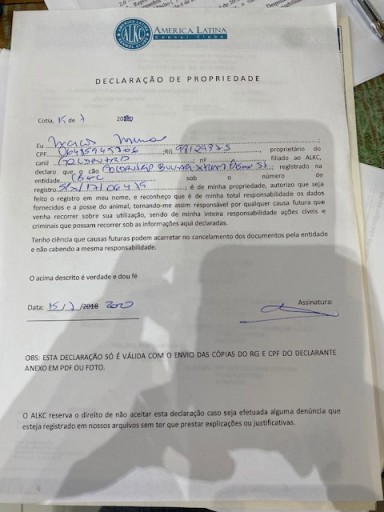 ALKC
AMERICA LATINA
Kennel Clube
DECLARAÇÃO DE PROPRIEDADE
Cotia, 15 de 7
Eu
CPF RG proprietário do
canil nº filiado ao ALKC,
declaro que o cão registrado na
entidade sob o número de
registro , é de minha propriedade, autorizo que seja
feito o registro em meu nome, e reconheço que é de minha total responsabilidade os dados
fornecidos e a posse do animal, tornando-me assim responsável por qualquer causa futura que
venha recorrer sobre sua utilização, sendo de minha inteira responsabilidade ações cíveis e
criminais que possam recorrer sob as informações aqui declaradas.
Tenho ciência que causas futuras podem acarretar no cancelamento dos documentos pela entidade
e não cabendo a mesma responsabilidade.
O acima descrito é verdade e dou fé
Data: 15/7 /2018 2020 Assinatura:
OBS: ESTA DECLARAÇÃO SÓ É VÁLIDA COM O ENVIO DAS CÓPIAS DO RG E CPF DO DECLARANTE
ANEXO EM PDF OU FOTO.
O ALKC reserva o direito de não aceitar esta declaração caso seja efetuada alguma denúncia que
esteja registrado em nossos arquivos sem ter que prestar explicações ou justificativas.